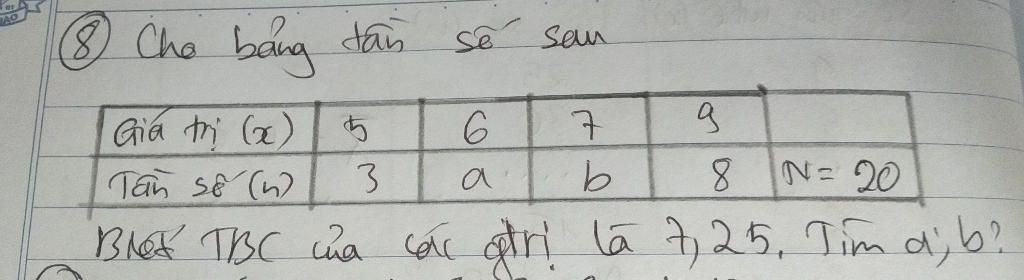 ⑧ Cho bảng tần số sau
Giá trị (x) 5 6 7 9
Tần số (n) 3 a b 8 N = 20
Biết TBC của các gtrị là 7,25. Tìm a; b?